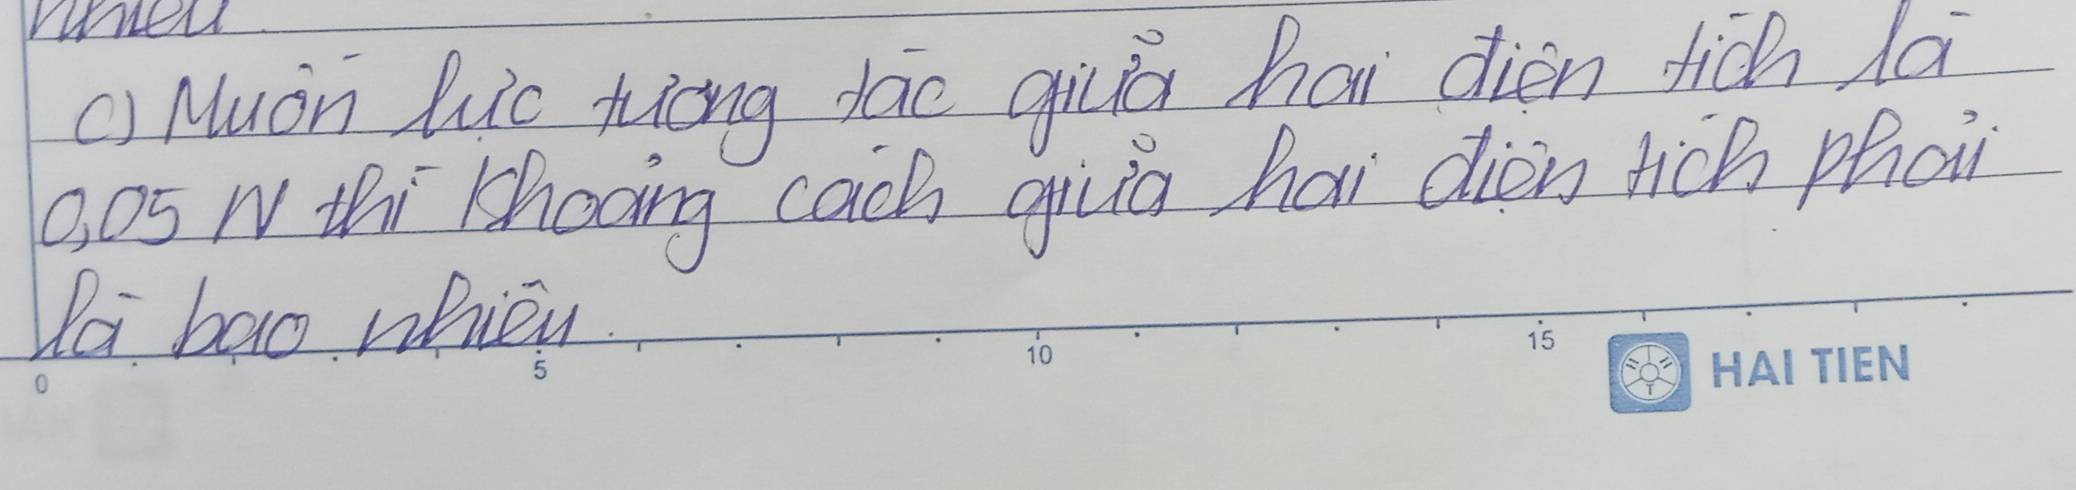 c) Muốn lực tương tác giữa hai điện tích là
0,05 N thì khoảng cách giữa hai điện tích phải
là bao nhiêu.
0 5 10 15
HAI TIEN